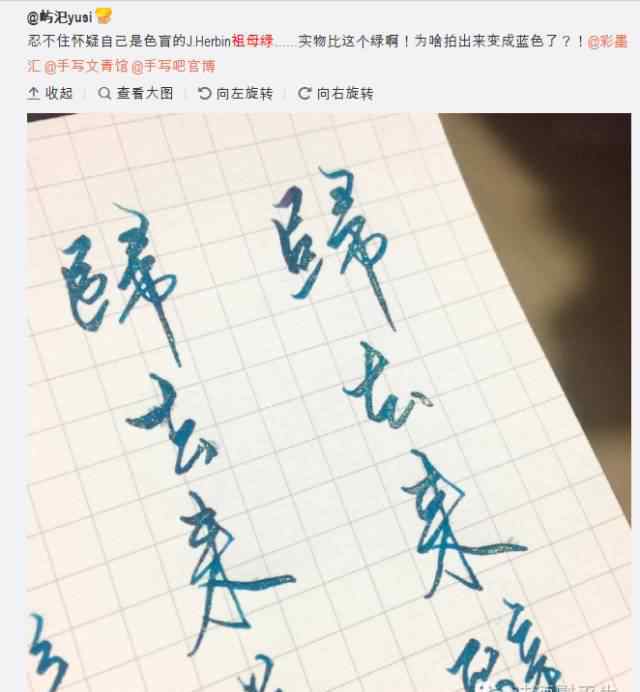 @屿汜yusi
忍不住怀疑自己是色盲的J.Herbin祖母绿……实物比这个绿啊！为啥拍出来变成蓝色了？！@彩墨
汇 @手写文青馆 @手写吧官博
收起 查看大图 向左旋转 向右旋转
歸去来
歸去来